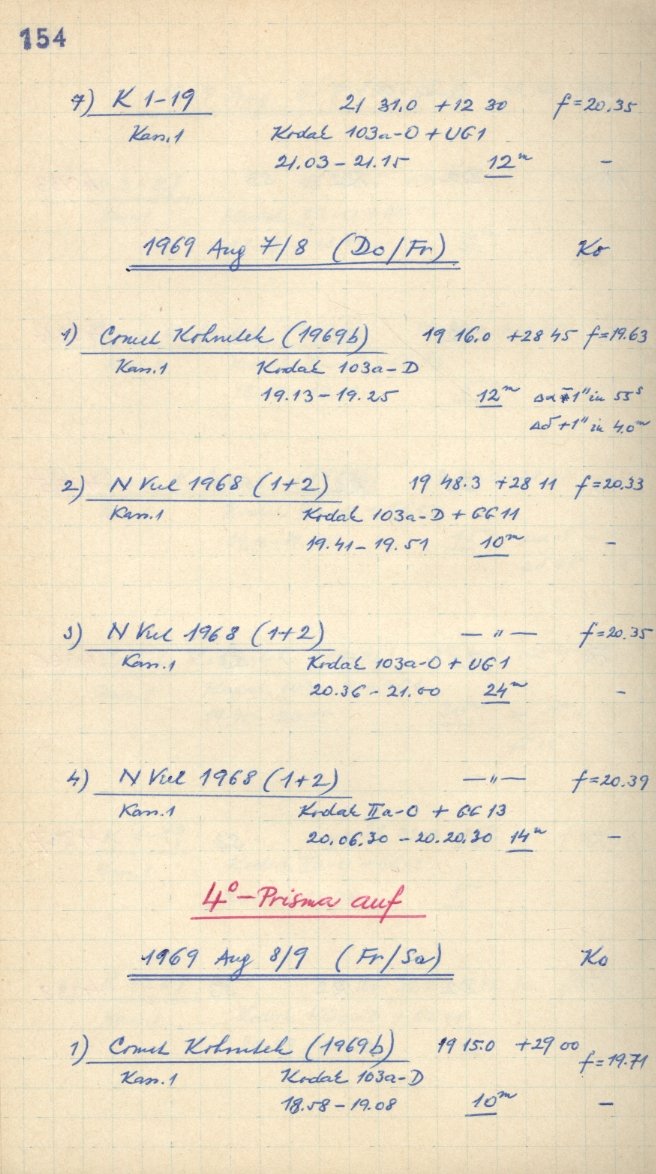 154
7) K 1-19 21 31.0 +12 30 f=20.35
Kass.1 Kodak 103a-O + UG1
21.03-21.15 12m -
1969 Aug 7/8 (Do/Fr) Ko
1) Comet Kohoutek (1969b) 19 16.0 +28 45 f=19.63
Kass.1 Kodak 103a-D
19.13-19.25 12m Δα 1" in 55s
Δδ +1" in 4.0m
2) N Vul 1968 (1+2) 19 48.3 +28 11 f=20.33
Kass.1 Kodak 103a-D + GG11
19.41-19.51 10m -
3) N Vul 1968 (1+2) — " — f=20.35
Kass.1 Kodak 103a-O + UG1
20.36-21.00 24m -
4) N Vul 1968 (1+2) — " — f=20.39
Kass.1 Kodak IIa-O + GG13
20.06.30 - 20.20.30 14m -
4°-Prisma auf
1969 Aug 8/9 (Fr/Sa) Ko
1) Comet Kohoutek (1969b) 19 15.0 +29 00 f=19.71
Kass.1 Kodak 103a-D
18.58-19.08 10m -